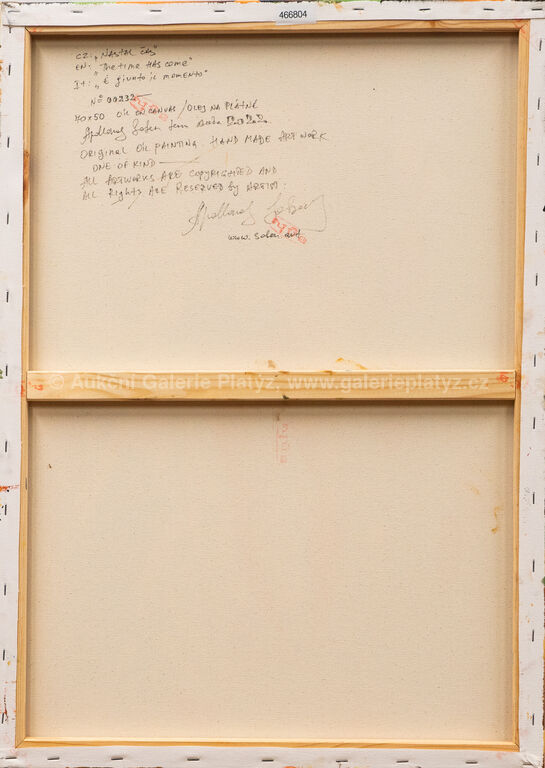 466804
CZ: „NASTAL ČAS"
EN: „The time HAS come"
It: „È giunto il momento"
No 00232
70x50 OIL ON CANVAS / OLEJ NA PLÁTNĚ
ORIGINAL OIL PAINTING. HAND MADE ARTWORK
ONE OF KIND
ALL ARTWORKS ARE COPYRIGHTED AND
ALL Rights ARE RESERVED by ARTIST.
© Aukční Galerie Platýz, www.galerieplatyz.cz